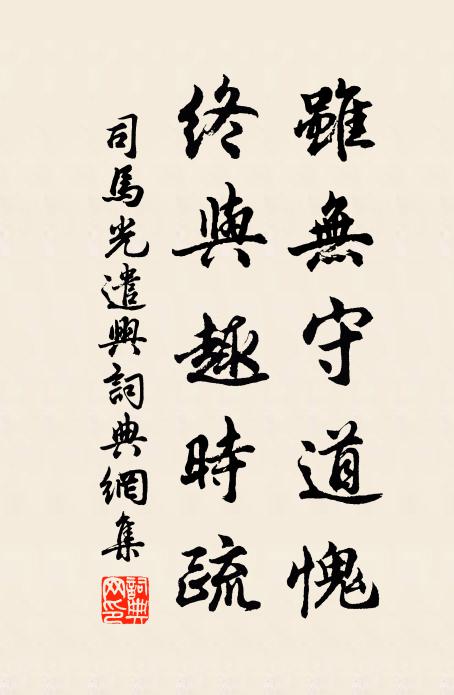 雖無守道愧
終與趣時疏
司馬光遣興詞典網集
詞典
网印